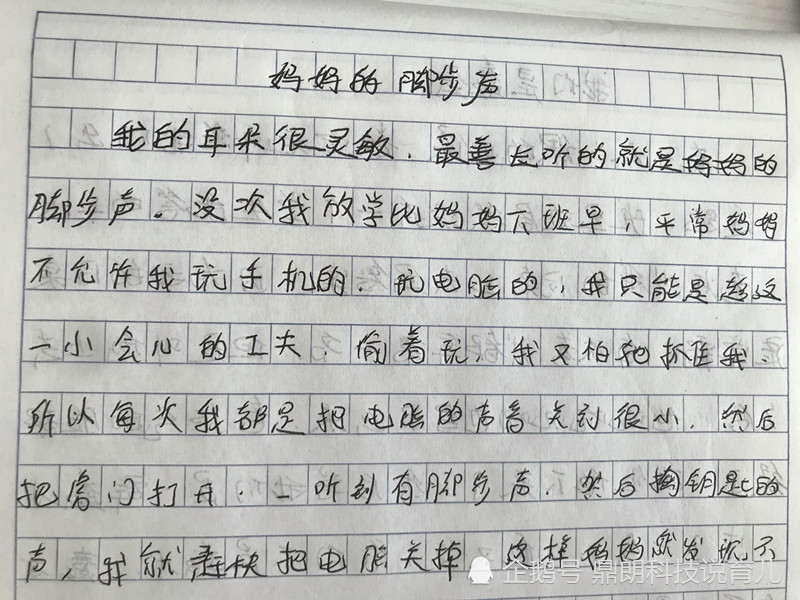 妈妈的脚步声
我的耳朵很灵敏,最善长听的就是妈妈的
脚步声。没次我放学比妈妈下班早,平常妈妈
不允许我玩手机的,玩电脑的,我只能是趁这
一小会儿的工夫,偷着玩,我又怕她抓住我,
所以每次我都是把电脑的声音关到很小,然后
把房门打开,一听到有脚步声,然后掏钥匙的
声,我就赶快把电脑关掉 这样妈妈就发现不
企鹅号 鼎朗科技说育儿